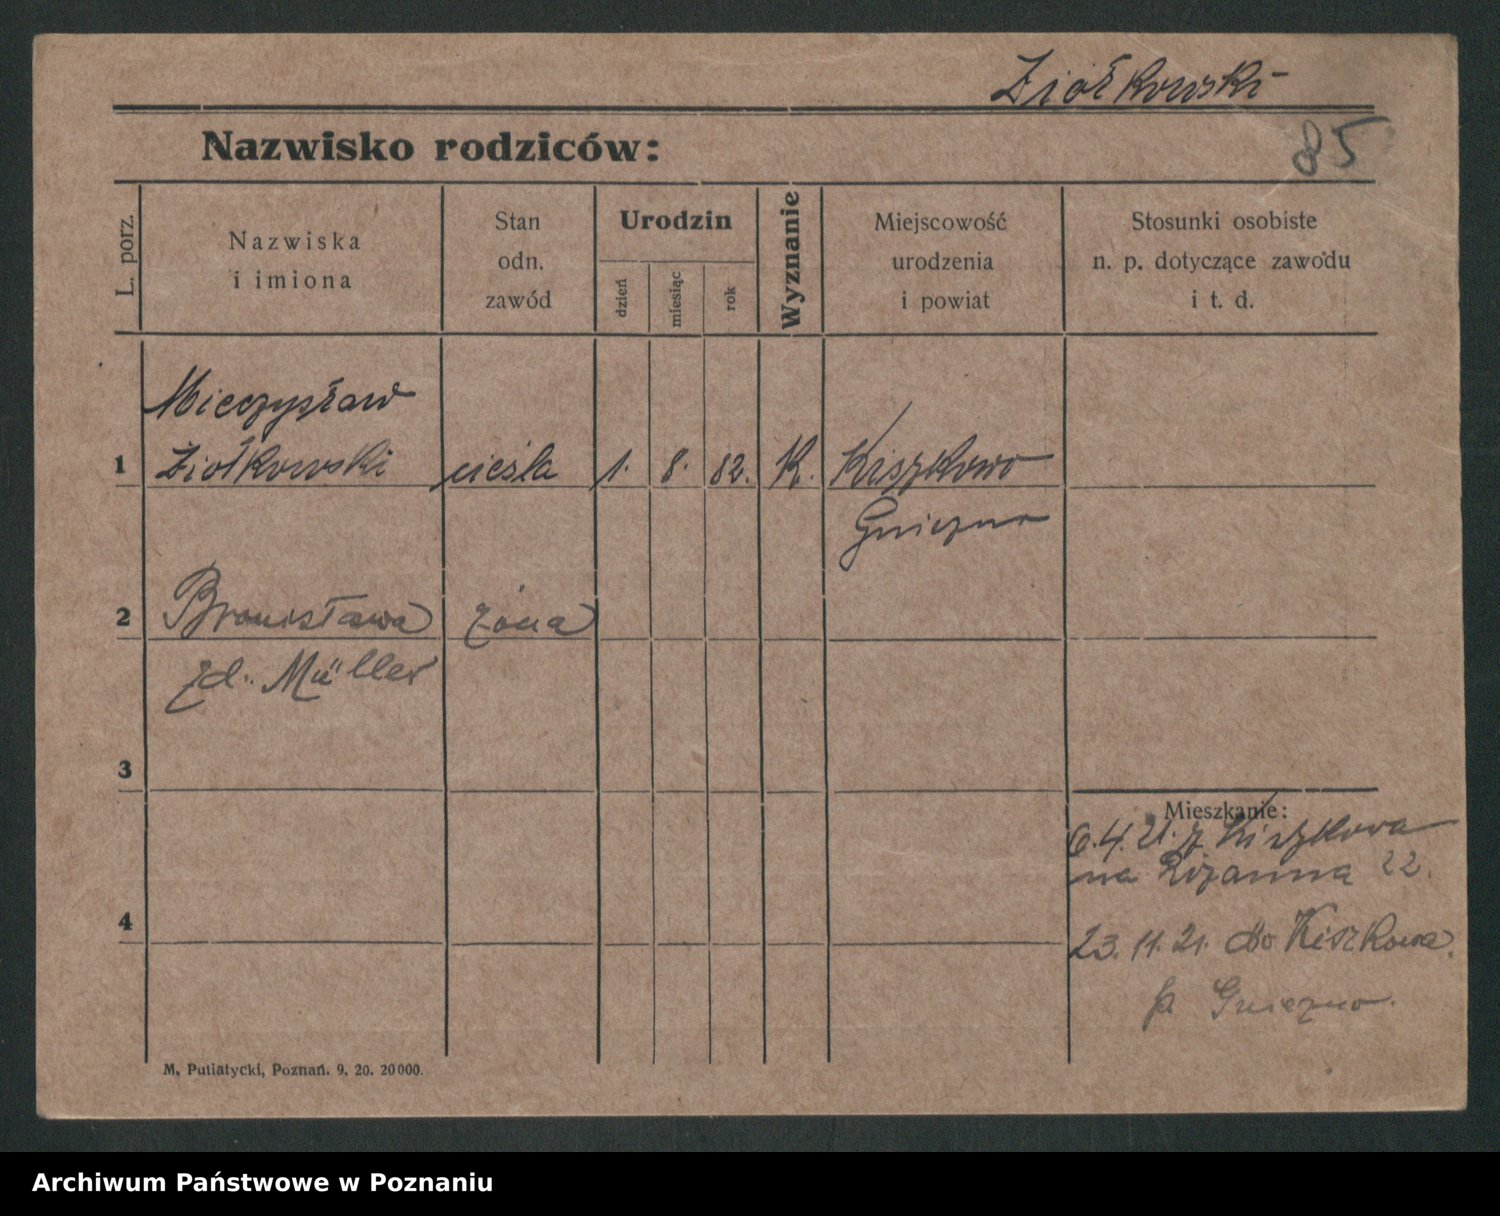 Ziółkowski
85
Nazwisko rodziców:
L. porz.
Nazwiska
i imiona
Stan
odn.
zawód
Urodzin
dzień
miesiąc
rok
Wyznanie
Miejscowość
urodzenia
i powiat
Stosunki osobiste
n. p. dotyczące zawodu
i t. d.
Mieczysław
1 Ziółkowski cieśla 1. 8. 82. K. Kiszkowo
Gniezno
2 Bronisława żona
zd. Müller
3
Mieszkanie:
6.4.21. z Kiszkowa
na 22.
4
23.11.21. do Kiszkowa.
p. Gniezno.
M. Putiatycki, Poznań. 9. 20. 20000.
Archiwum Państwowe w Poznaniu